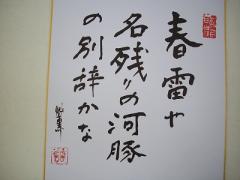 春雷や
名残りの河豚
の別辞かな